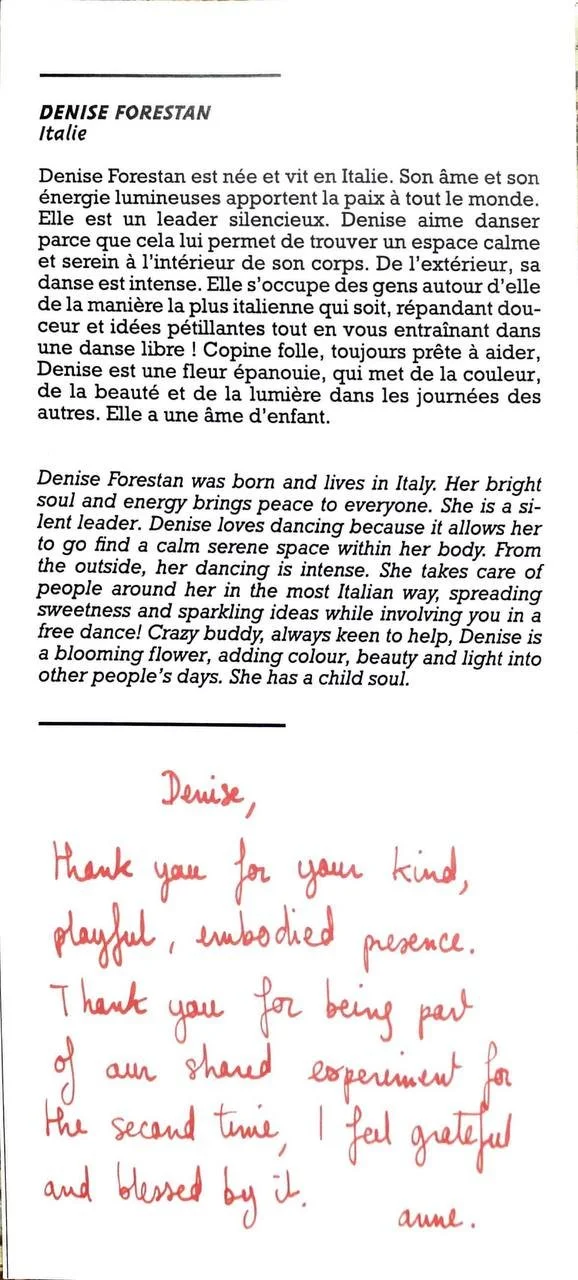 DENISE FORESTAN
Italie
Denise Forestan est née et vit en Italie. Son âme et son
énergie lumineuses apportent la paix à tout le monde.
Elle est un leader silencieux. Denise aime danser
parce que cela lui permet de trouver un espace calme
et serein à l'intérieur de son corps. De l'extérieur, sa
danse est intense. Elle s'occupe des gens autour d'elle
de la manière la plus italienne qui soit, répandant dou-
ceur et idées pétillantes tout en vous entraînant dans
une danse libre ! Copine folle, toujours prête à aider,
Denise est une fleur épanouie, qui met de la couleur,
de la beauté et de la lumière dans les journées des
autres. Elle a une âme d'enfant.
Denise Forestan was born and lives in Italy. Her bright
soul and energy brings peace to everyone. She is a si-
lent leader. Denise loves dancing because it allows her
to go find a calm serene space within her body. From
the outside, her dancing is intense. She takes care of
people around her in the most Italian way, spreading
sweetness and sparkling ideas while involving you in a
free dance! Crazy buddy, always keen to help, Denise is
a blooming flower, adding colour, beauty and light into
other people's days. She has a child soul.
Denise,
thank you for your kind,
playful, embodied presence.
Thank you for being part
of our shared experiment for
the second time, I feel grateful
and blessed by it.
anne.